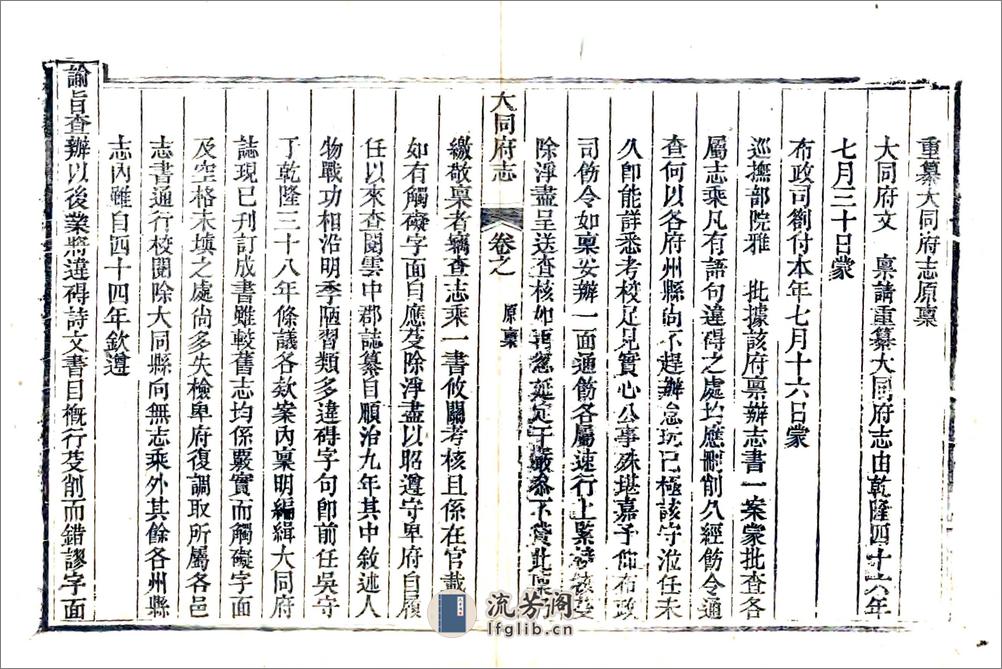 重纂大同府志原稟
大同府文 稟請重纂大同府志由乾隆四十六年
七月三十日蒙
布政司劄付本年七月十六日蒙
巡撫部院雅 批據該府稟辦志書一案蒙批查各
屬志乘凡有語句違碍之處均應刪削久經飭令通
查何以各府州縣尙不趕辦怠玩已極該守涖任未
久卽能詳悉考校足見實心公事殊堪嘉予仰布政
司飭令如稟妥辦一面通飭各屬速行上緊 芟
除浮盡呈送查核如再怠延定干嚴叅不貸此稟
大同府志 卷之 原稟
繳敬稟者竊查志乘一書攸關考核且係在官裁
如有觸礙字面自應芟除淨盡以昭遵守卑府自履
任以來查閱雲中郡誌纂自順治九年其中敘述人
物戰功相沿明季陋習類多違碍字句卽前任吳守
丁乾隆三十八年條議各欵案內稟明編緝大同府
誌現已刊訂成書雖較舊志均係覈實而觸礙字面
及空格未填之處尙多失檢卑府復調取所屬各邑
志書通行校閱除大同縣向無志乘外其餘各州縣
志內雖自四十四年欽遵
諭旨查辦以後業將違碍詩文書目槪行芟削而錯謬字面
流芳阁
lfglib.cn